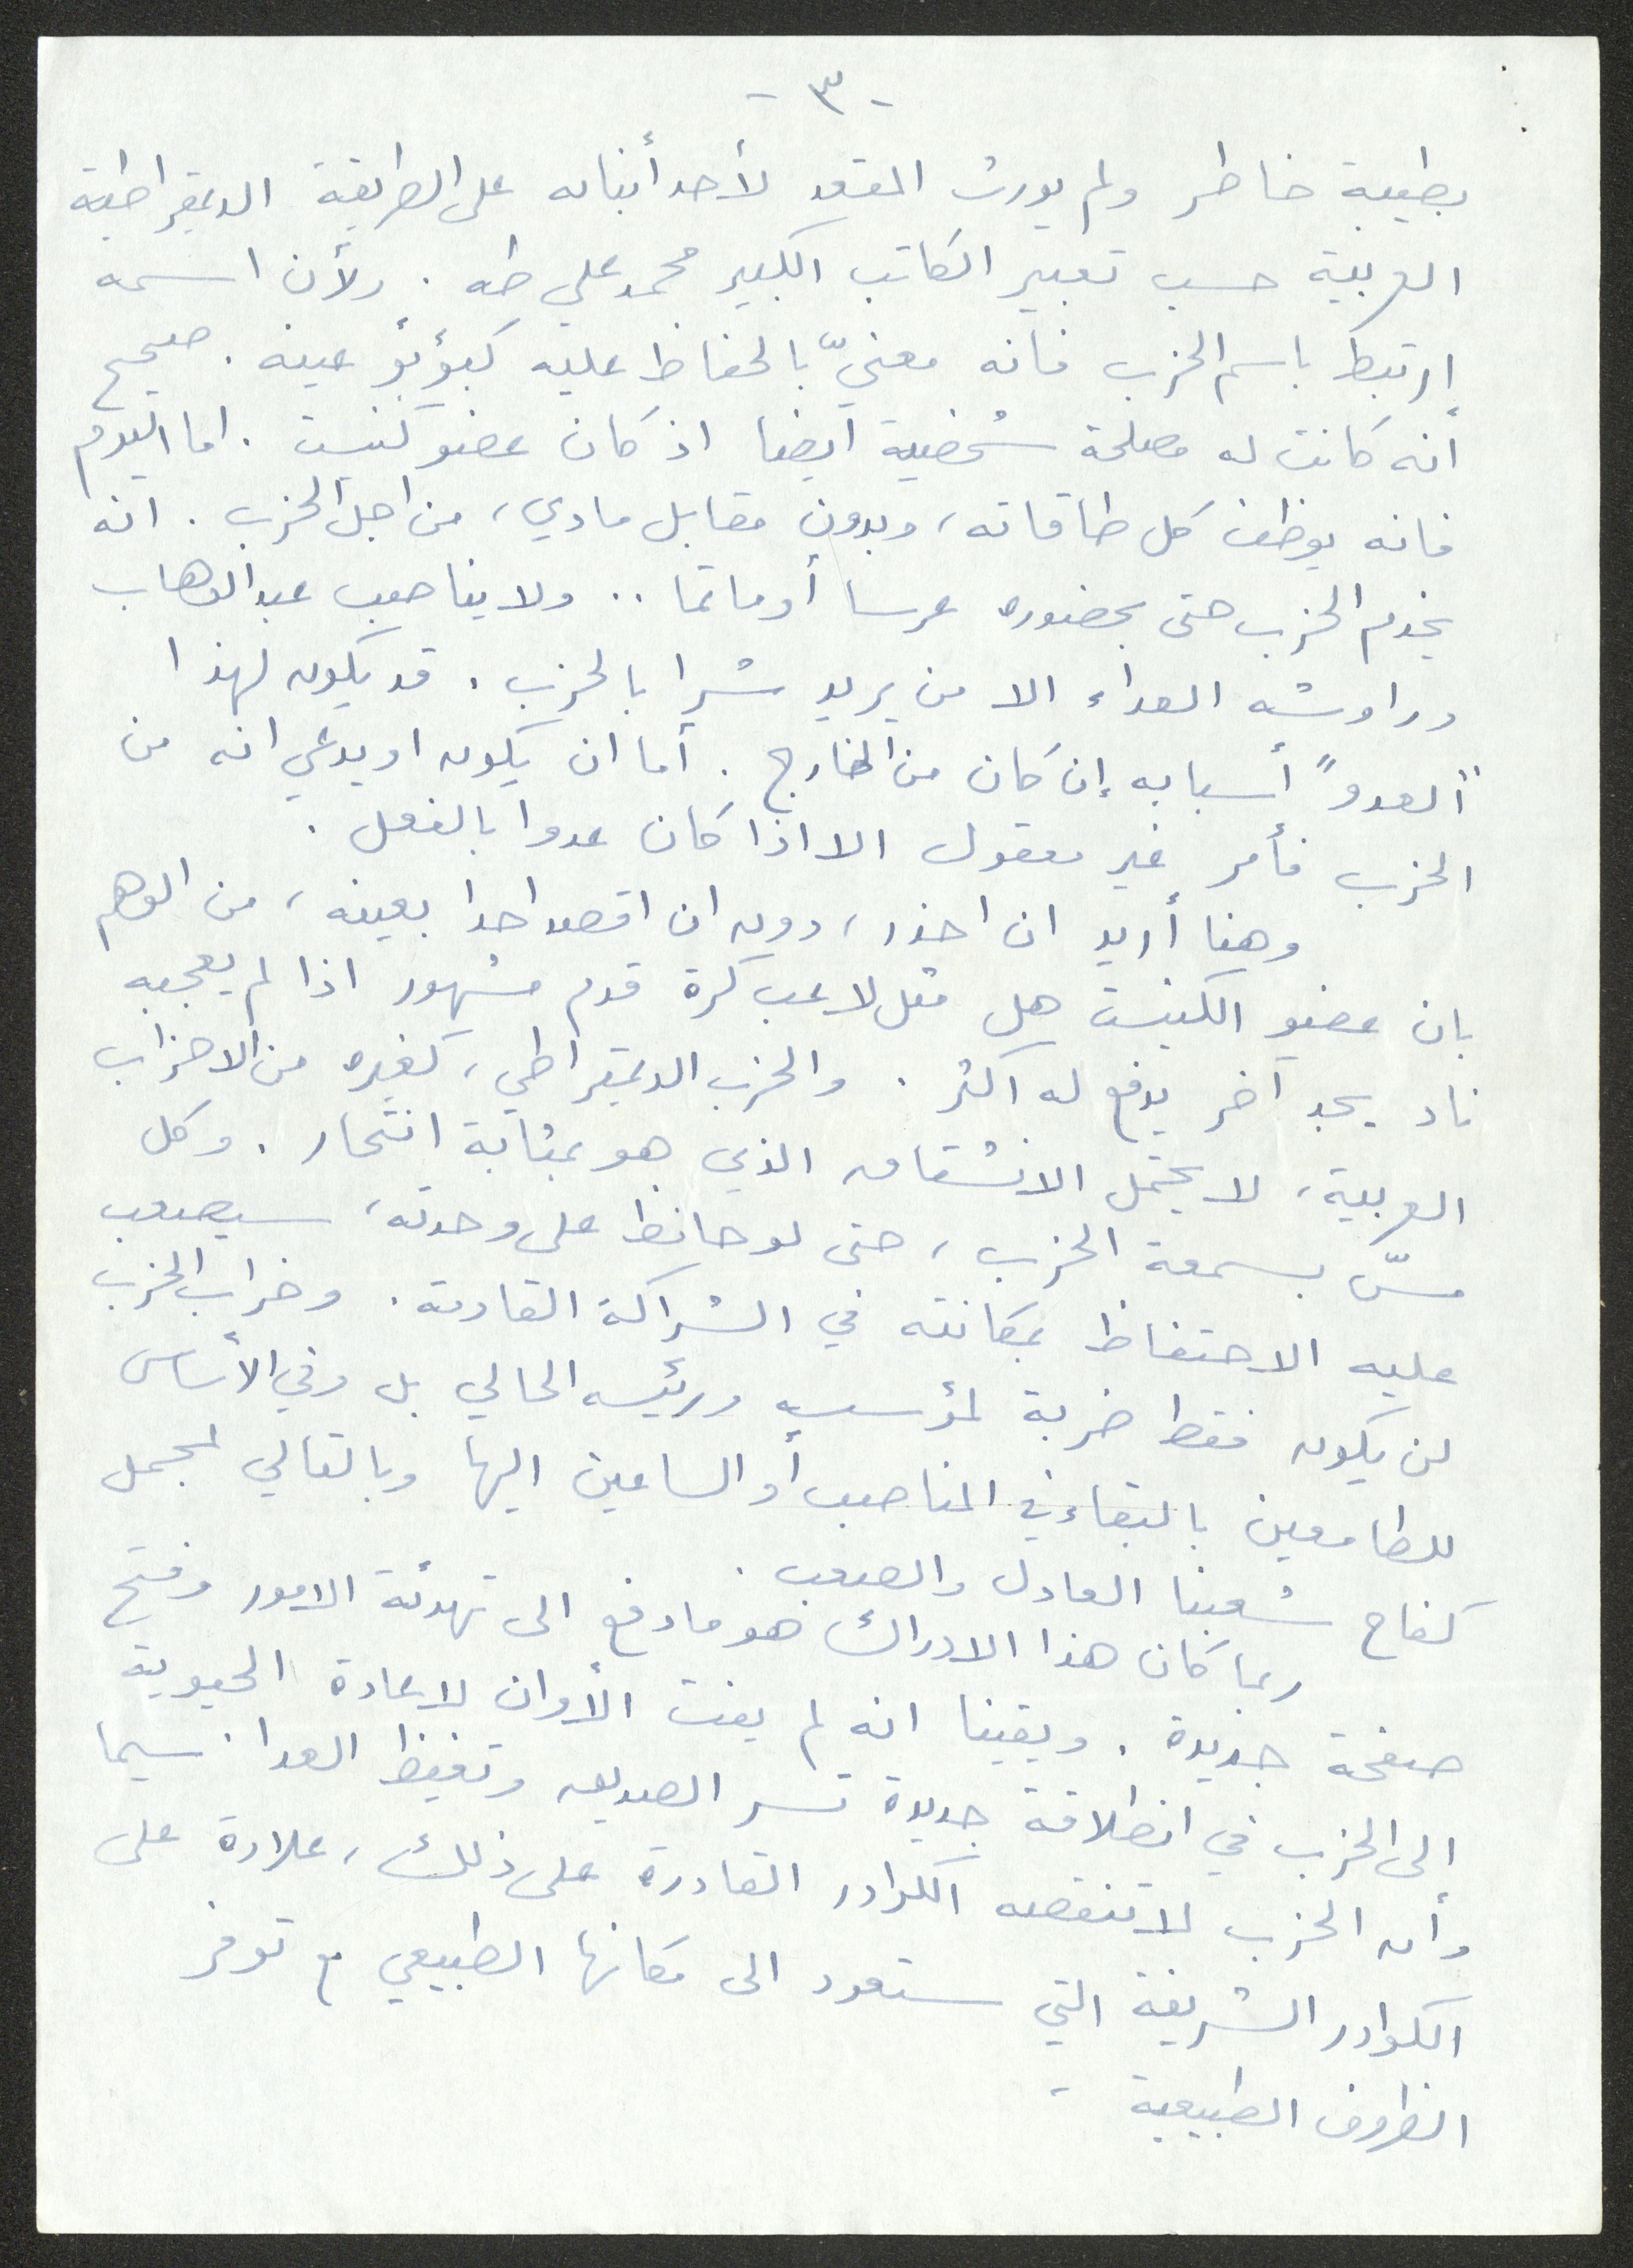 - ٣ -
بطيبة خاطر ولم يورث المقعد لأحد أبنائه على الطريقة الديمقراطية
العربية حسب تعبير الكاتب الكبير محمد علي طه . ولأن اسمه
إرتبط باسم الحزب فانه معنيّ بالحفاظ عليه كبؤبؤ عينه . صحيح
أنه كانت له مصلحة شخصية ايضا اذ كان عضو كنيست . اما اليوم
فانه يوظف كل طاقاته ، وبدون مقابل مادي ، من اجل الحزب . انه
يخدم الحزب حتى بحضوره عرسا أو مأتما .. ولا يناصب عبد الوهاب
دراوشه العداء الا من يريد شرا بالحزب . قد يكون لهذا
"العدو" أسبابه إن كان من الخارج . أما ان يكون او يدعي انه من
الحزب فأمر غير معقول الا اذا كان عدوا بالفعل .
وهنا أريد ان احذر ، دون ان اقصد احدا بعينه ، من الوهم
بان عضو الكنيست هل مثل لاعب كرة قدم مشهور اذا لم يعجبه
ناد يجد آخر يدفع له اكثر . والحزب الديمقراطي ، كغيره من الاحزاب
العربية ، لا يحتمل الانشقاق الذي هو بمثابة انتحار . وكل
مسّ بسمعة الحزب ، حتى لو حافظ على وحدته ، سيصعب
عليه الاحتفاظ بمكانته في الشراكة القادمة . وخراب الحزب
لن يكون فقط ضربة لمؤسسه ورئيسه الحالي بل وفي الأساس
للطامعين بالبقاء في المناصب أو الساعين اليها وبالتالي لمجمل
كفاح شعبنا العادل والصعب .
ربما كان هذا الادراك هو ما دفع الى تهدئة الامور وفتح
صفحة جديدة . ويقينا انه لم يفت الأوان لاعادة الحيوية
إلى الحزب في انطلاقة جديدة تسر الصديق وتغيظ العدا . سيما
وأن الحزب لا تنقصه الكوادر القادرة على ذلك ، علاوة على
الكوادر الشريفة التي ستعود الى مكانها الطبيعي مع توفر
الظروف الطبيعية -